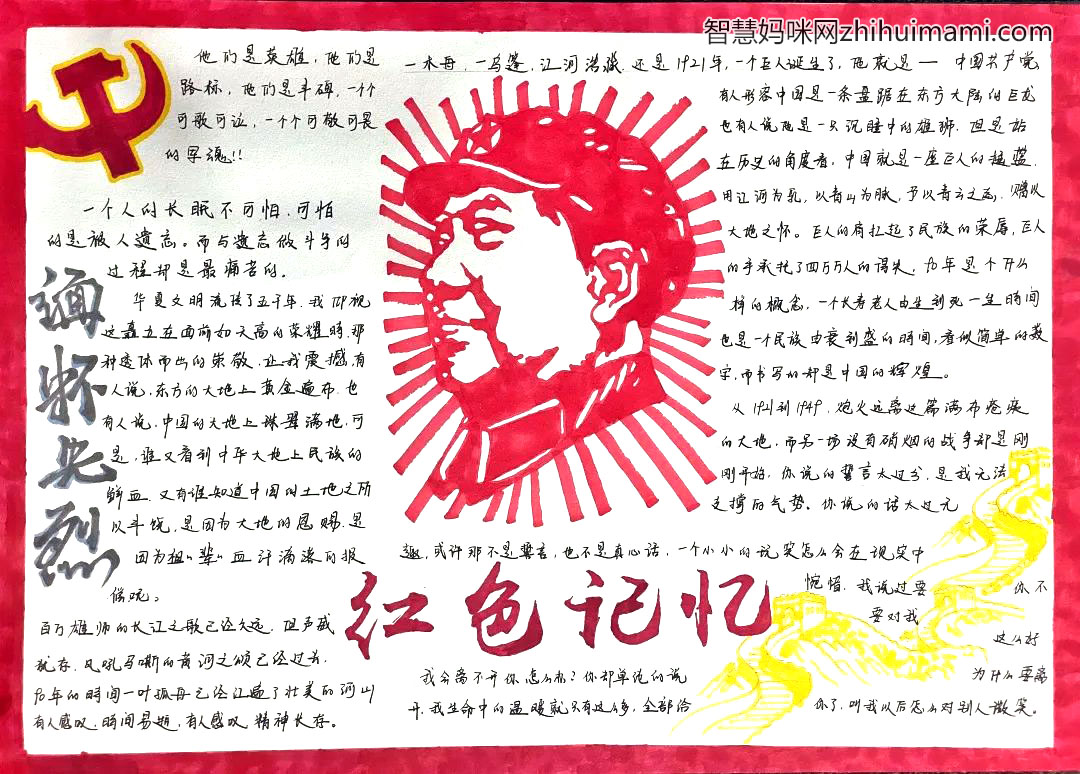 智慧妈咪网zhihuimami.com
他们是英雄，他们是
路标，他们是丰碑，一个个
可歌可泣，一个个可敬可畏
的军魂！！
一个人的长眠不可怕，可怕
的是被人遗忘。而与遗忘做斗争的
过程却是最痛苦的。
华夏文明流传了五千年，我仰视
这矗立在面前如天高的荣耀时，那
种透体而出的崇敬，让我震撼，有
人说，东方的大地上黄金遍布，也
有人说，中国的大地上珠翠满地，可
是，谁又看到中华大地上民族的
鲜血，又有谁知道中国的土地之所
以丰饶，是因为大地的恩赐，是
因为祖“辈”血汗滴漆的报
偿呢。
百万雄师的长江之歌已经久远，但声威
犹存，风吼马嘶的黄河之颂已经过去，
90年的时间一叶孤舟已经江遍了壮美的河山
有人感叹，时间易逝，有人感叹，精神长存。
缅怀先烈
一木舟，一乌篷，江河浩淼，还是1921年，一个巨人诞生了，他就是一中国共产党
有人形容中国是一条盘踞在东方大陆的巨龙
也有人说他是一只沉睡中的雄狮，但是站
在历史的角度看，中国就是一座巨人的摇篮，
用江河为乳，以青山为脉，予以青云之志，赠以
大地之怀。巨人的背扛起了民族的荣辱，巨人
的手承托了四万万人的得失，90年是个什么
样的概念，一个长寿老人由生到死一生时间
也是一个民族由衰到盛的时间，看似简单的数
字，而书写的却是中国的辉煌。
从1921到1949，炮火远离这篇满布疮痍
的大地，而另一场没有硝烟的战争却是刚
刚开始，你说的誓言太过分，是我无法
支撑的气势。你说的话太过无
趣，或许那不是誓言，也不是真心话，一个小小的玩笑怎么会在现实中
惋惜，我说过要 你不
要对我 这么好
我会离不开你，怎么办？你却单纯的说 为什么要离
开，我生命中的温暖就只有这么多，全部给 你了，叫我以后怎么对别人微笑。
红色记忆